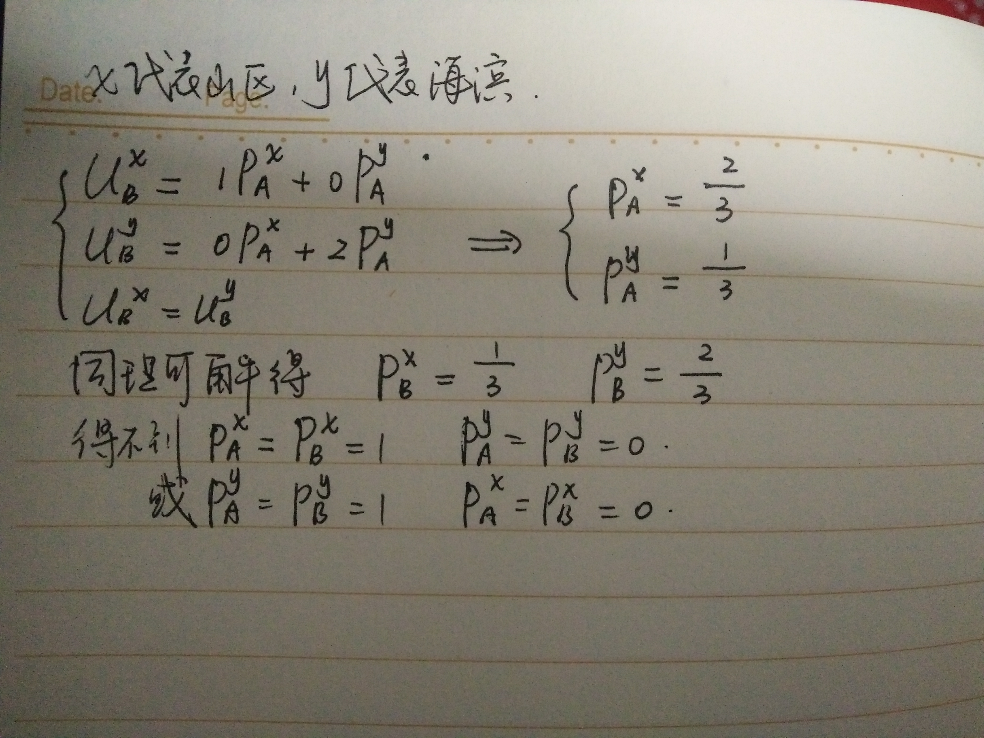 Date: Page:
x代表山区,y代表海滨.
U_B^x = 1P_A^x + 0P_A^y
U_B^y = 0P_A^x + 2P_A^y ⟹ P_A^x = 2/3
U_B^x = U_B^y P_A^y = 1/3
同理可解得 P_B^x = 1/3 P_B^y = 2/3
得不到 P_A^x = P_B^x = 1 P_A^y = P_B^y = 0.
或 P_A^y = P_B^y = 1 P_A^x = P_B^x = 0.